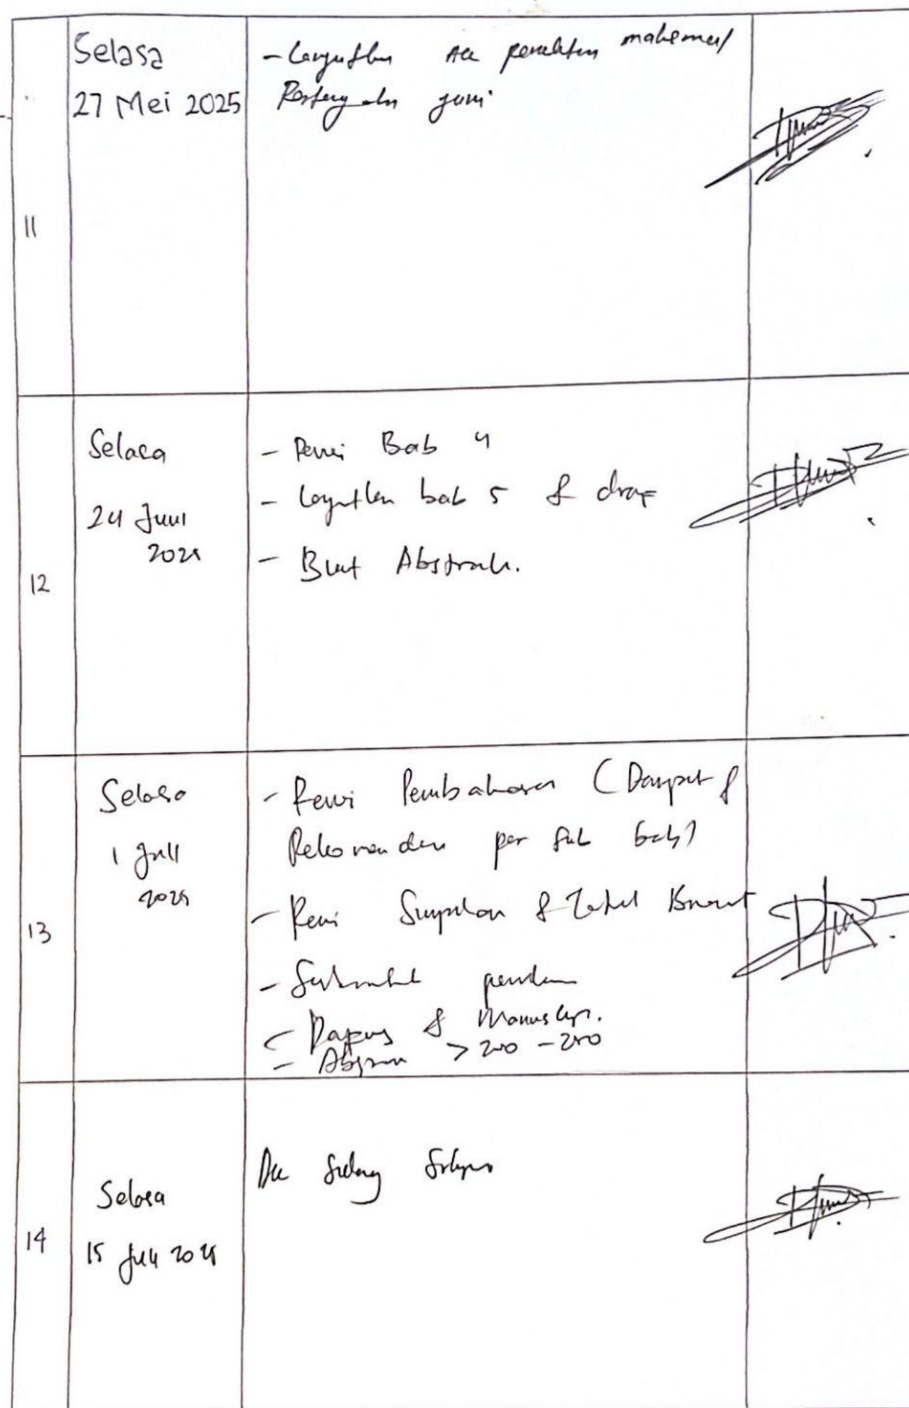 11
Selasa
27 Mei 2025
- Lanjutkan Acc penelitian
juni
12
Selasa
24 Juni
2025
- Revisi Bab 4
- Lanjutkan bab 5 & draf
- Buat Abstrak.
13
Selasa
1 Juli
2025
- Revisi Pembahasan (Dampak &
Rekomendasi per sub bab)
- Revisi Simpulan &
-
- Dapus & Manuskrip.
- Abstrak > 200 - 250
14
Selasa
15 Juli 2025
Acc Sidang Skripsi